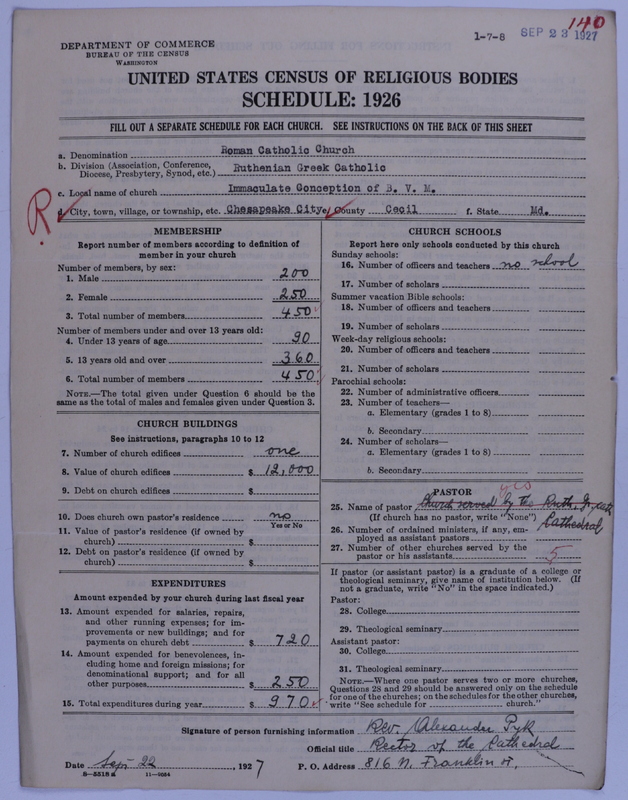 140
1-7-8 SEP 23 1927
DEPARTMENT OF COMMERCE
BUREAU OF THE CENSUS
WASHINGTON
UNITED STATES CENSUS OF RELIGIOUS BODIES
SCHEDULE: 1926
FILL OUT A SEPARATE SCHEDULE FOR EACH CHURCH. SEE INSTRUCTIONS ON THE BACK OF THIS SHEET
a. Denomination Roman Catholic Church
b. Division (Association, Conference, Diocese, Presbytery, Synod, etc.) Ruthenian Greek Catholic
c. Local name of church Immaculate Conception of B. V. M.
R
d. City, town, village, or township, etc. Chesapeake City e. County Cecil f. State Md.
MEMBERSHIP
Report number of members according to definition of
member in your church
Number of members, by sex:
1. Male 200
2. Female 250
3. Total number of members 450
Number of members under and over 13 years old:
4. Under 13 years of age 90
5. 13 years old and over 360
6. Total number of members 450
NOTE.—The total given under Question 6 should be the
same as the total of males and females given under Question 3.
CHURCH BUILDINGS
See instructions, paragraphs 10 to 12
7. Number of church edifices one
8. Value of church edifices $ 12,000
9. Debt on church edifices $
10. Does church own pastor's residence no
Yes or No
11. Value of pastor's residence (if owned by
church) $
12. Debt on pastor's residence (if owned by
church) $
EXPENDITURES
Amount expended by your church during last fiscal year
13. Amount expended for salaries, repairs,
and other running expenses; for im-
provements or new buildings; and for
payments on church debt $ 720
14. Amount expended for benevolences, in-
cluding home and foreign missions; for
denominational support; and for all
other purposes $ 250
15. Total expenditures during year $ 970
CHURCH SCHOOLS
Report here only schools conducted by this church
Sunday schools:
16. Number of officers and teachers no school
17. Number of scholars
Summer vacation Bible schools:
18. Number of officers and teachers
19. Number of scholars
Week-day religious schools:
20. Number of officers and teachers
21. Number of scholars
Parochial schools:
22. Number of administrative officers
23. Number of teachers—
a. Elementary (grades 1 to 8)
b. Secondary
24. Number of scholars—
a. Elementary (grades 1 to 8)
b. Secondary
PASTOR
yes
25. Name of pastor Church served by the Ruth. Greek
(If church has no pastor, write "None") Cathedral
26. Number of ordained ministers, if any, em-
ployed as assistant pastors
27. Number of other churches served by the
pastor or his assistants 5
If pastor (or assistant pastor) is a graduate of a college or
theological seminary, give name of institution below. (If
not a graduate, write "No" in the space indicated.)
Pastor:
28. College
29. Theological seminary
Assistant pastor:
30. College
31. Theological seminary
NOTE.—Where one pastor serves two or more churches,
Questions 28 and 29 should be answered only on the schedule
for one of the churches; on the schedules for the other churches,
write "See schedule for church."
Signature of person furnishing information Rev. Alexander Pyk
Official title Rector of the Cathedral
Date Sept 22, 1927 P. O. Address 816 N. Franklin St.
8-5518a 11-9024